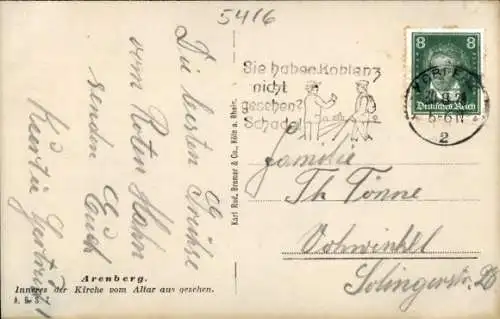 5416
Die besten Grüße
vom Roten Hahn
senden Euch
Gertrud
Arenberg.
Inneres der Kirche vom Altar aus gesehen.
A. G. S.
Karl Rud. Bremer & Co., Köln a. Rhein.
Sie haben Koblenz
nicht
gesehen?
Schade!
8 8
Deutsches Reich
2
Familie
Th. Tönne
Vohwinkel
Solingerstr.